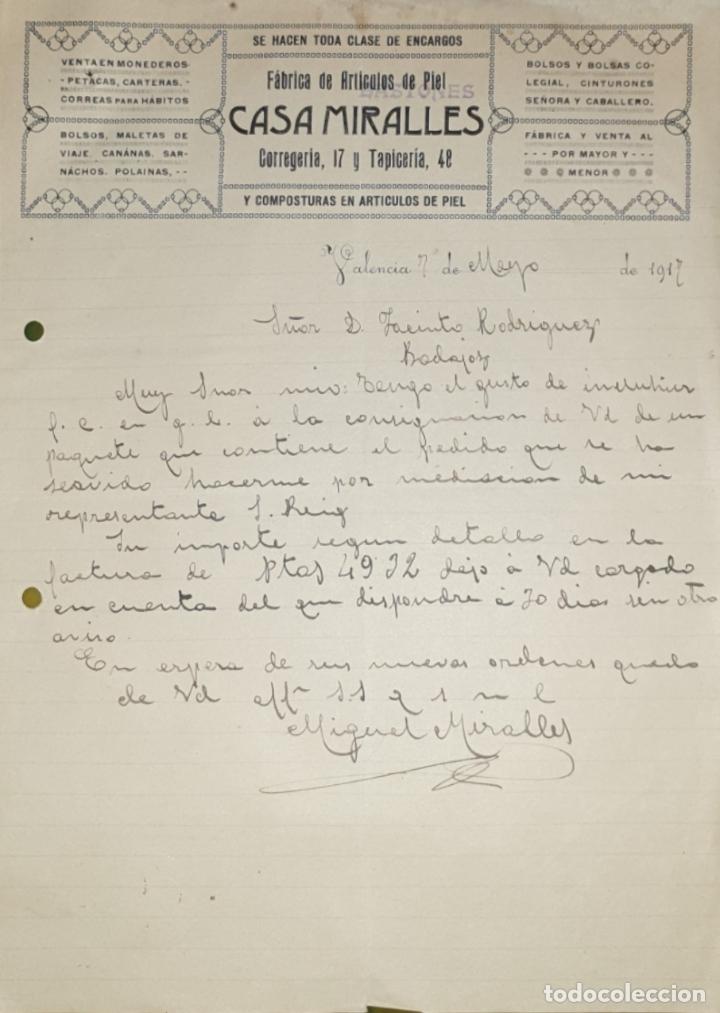 SE HACEN TODA CLASE DE ENCARGOS
VENTA EN MONEDEROS
- PETACAS, CARTERAS. -
CORREAS PARA HÁBITOS
BOLSOS, MALETAS DE
VIAJE. CANÁNAS. SAR-
NÁCHOS. POLAINAS, - -
Fábrica de Artículos de Piel
BASTONES
CASA MIRALLES
Corregería, 17 y Tapicería, 48
Y COMPOSTURAS EN ARTICULOS DE PIEL
BOLSOS Y BOLSAS CO-
LEGIAL, CINTURONES
SEÑORA Y CABALLERO.
FÁBRICA Y VENTA AL
- - - POR MAYOR Y - - -
MENOR
Valencia 7 de Mayo de 1917
Señor D. Jacinto Rodriguez
Badajoz
Muy Snor mio: Tengo el gusto de
f. c. en g. v. á la consignacion de Vd de un
paquete que contiene el pedido que se ha
servido hacerme por mediacion de mi
representante S. Reig
Su importe segun detalla en la
factura de Ptas 49 32 dejo á Vd cargado
en cuenta del que dispondre á 30 dias sin otro
aviso.
En espera de sus nuevas ordenes quedo
de Vd affmo S.S q s m
Miguel Miralles
todocoleccion